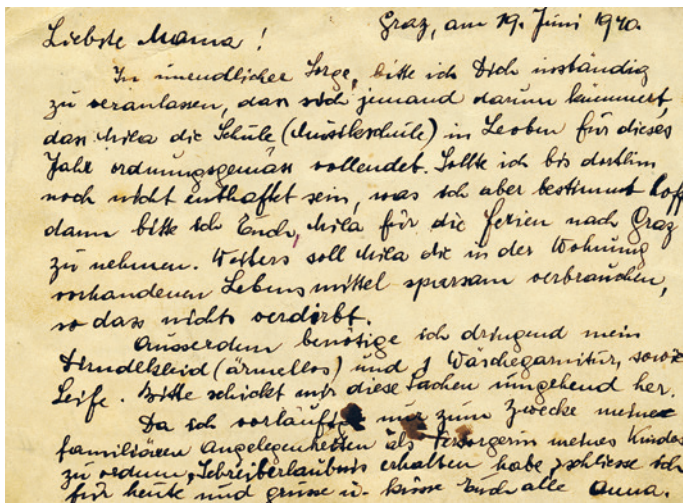 Graz, am 19. Juni 1940.
Liebste Mama!
In unendlicher Sorge, bitte ich Dich inständig
zu veranlassen, dass sich jemand darum kümmert,
dass Mila die Schule (Musikschule) in Leoben für dieses
Jahr ordnungsgemäss vollendet. Sollte ich bis dorthin
noch nicht enthaftet sein, was ich aber bestimmt hoff
dann bitte ich Euch, Mila für die Ferien nach Graz
zu nehmen. Weiters soll Mila die in der Wohnung
vorhandenen Lebensmittel sparsam verbrauchen,
so dass nichts verdirbt.
Ausserdem benötige ich dringend mein
Dirndlkleid (ärmellos) und 1 Wäschegarnitur, sowie
Seife. Bitte schickt mir diese Sachen umgehend her.
Da ich vorläufig nur zum Zwecke meiner
familiären Angelegenheiten als Versorgerin meines Kindes
zu ordnen, Schreiberlaubnis erhalten habe, schliesse ich
für heute und grüsse u. küsse Euch alle Anna.